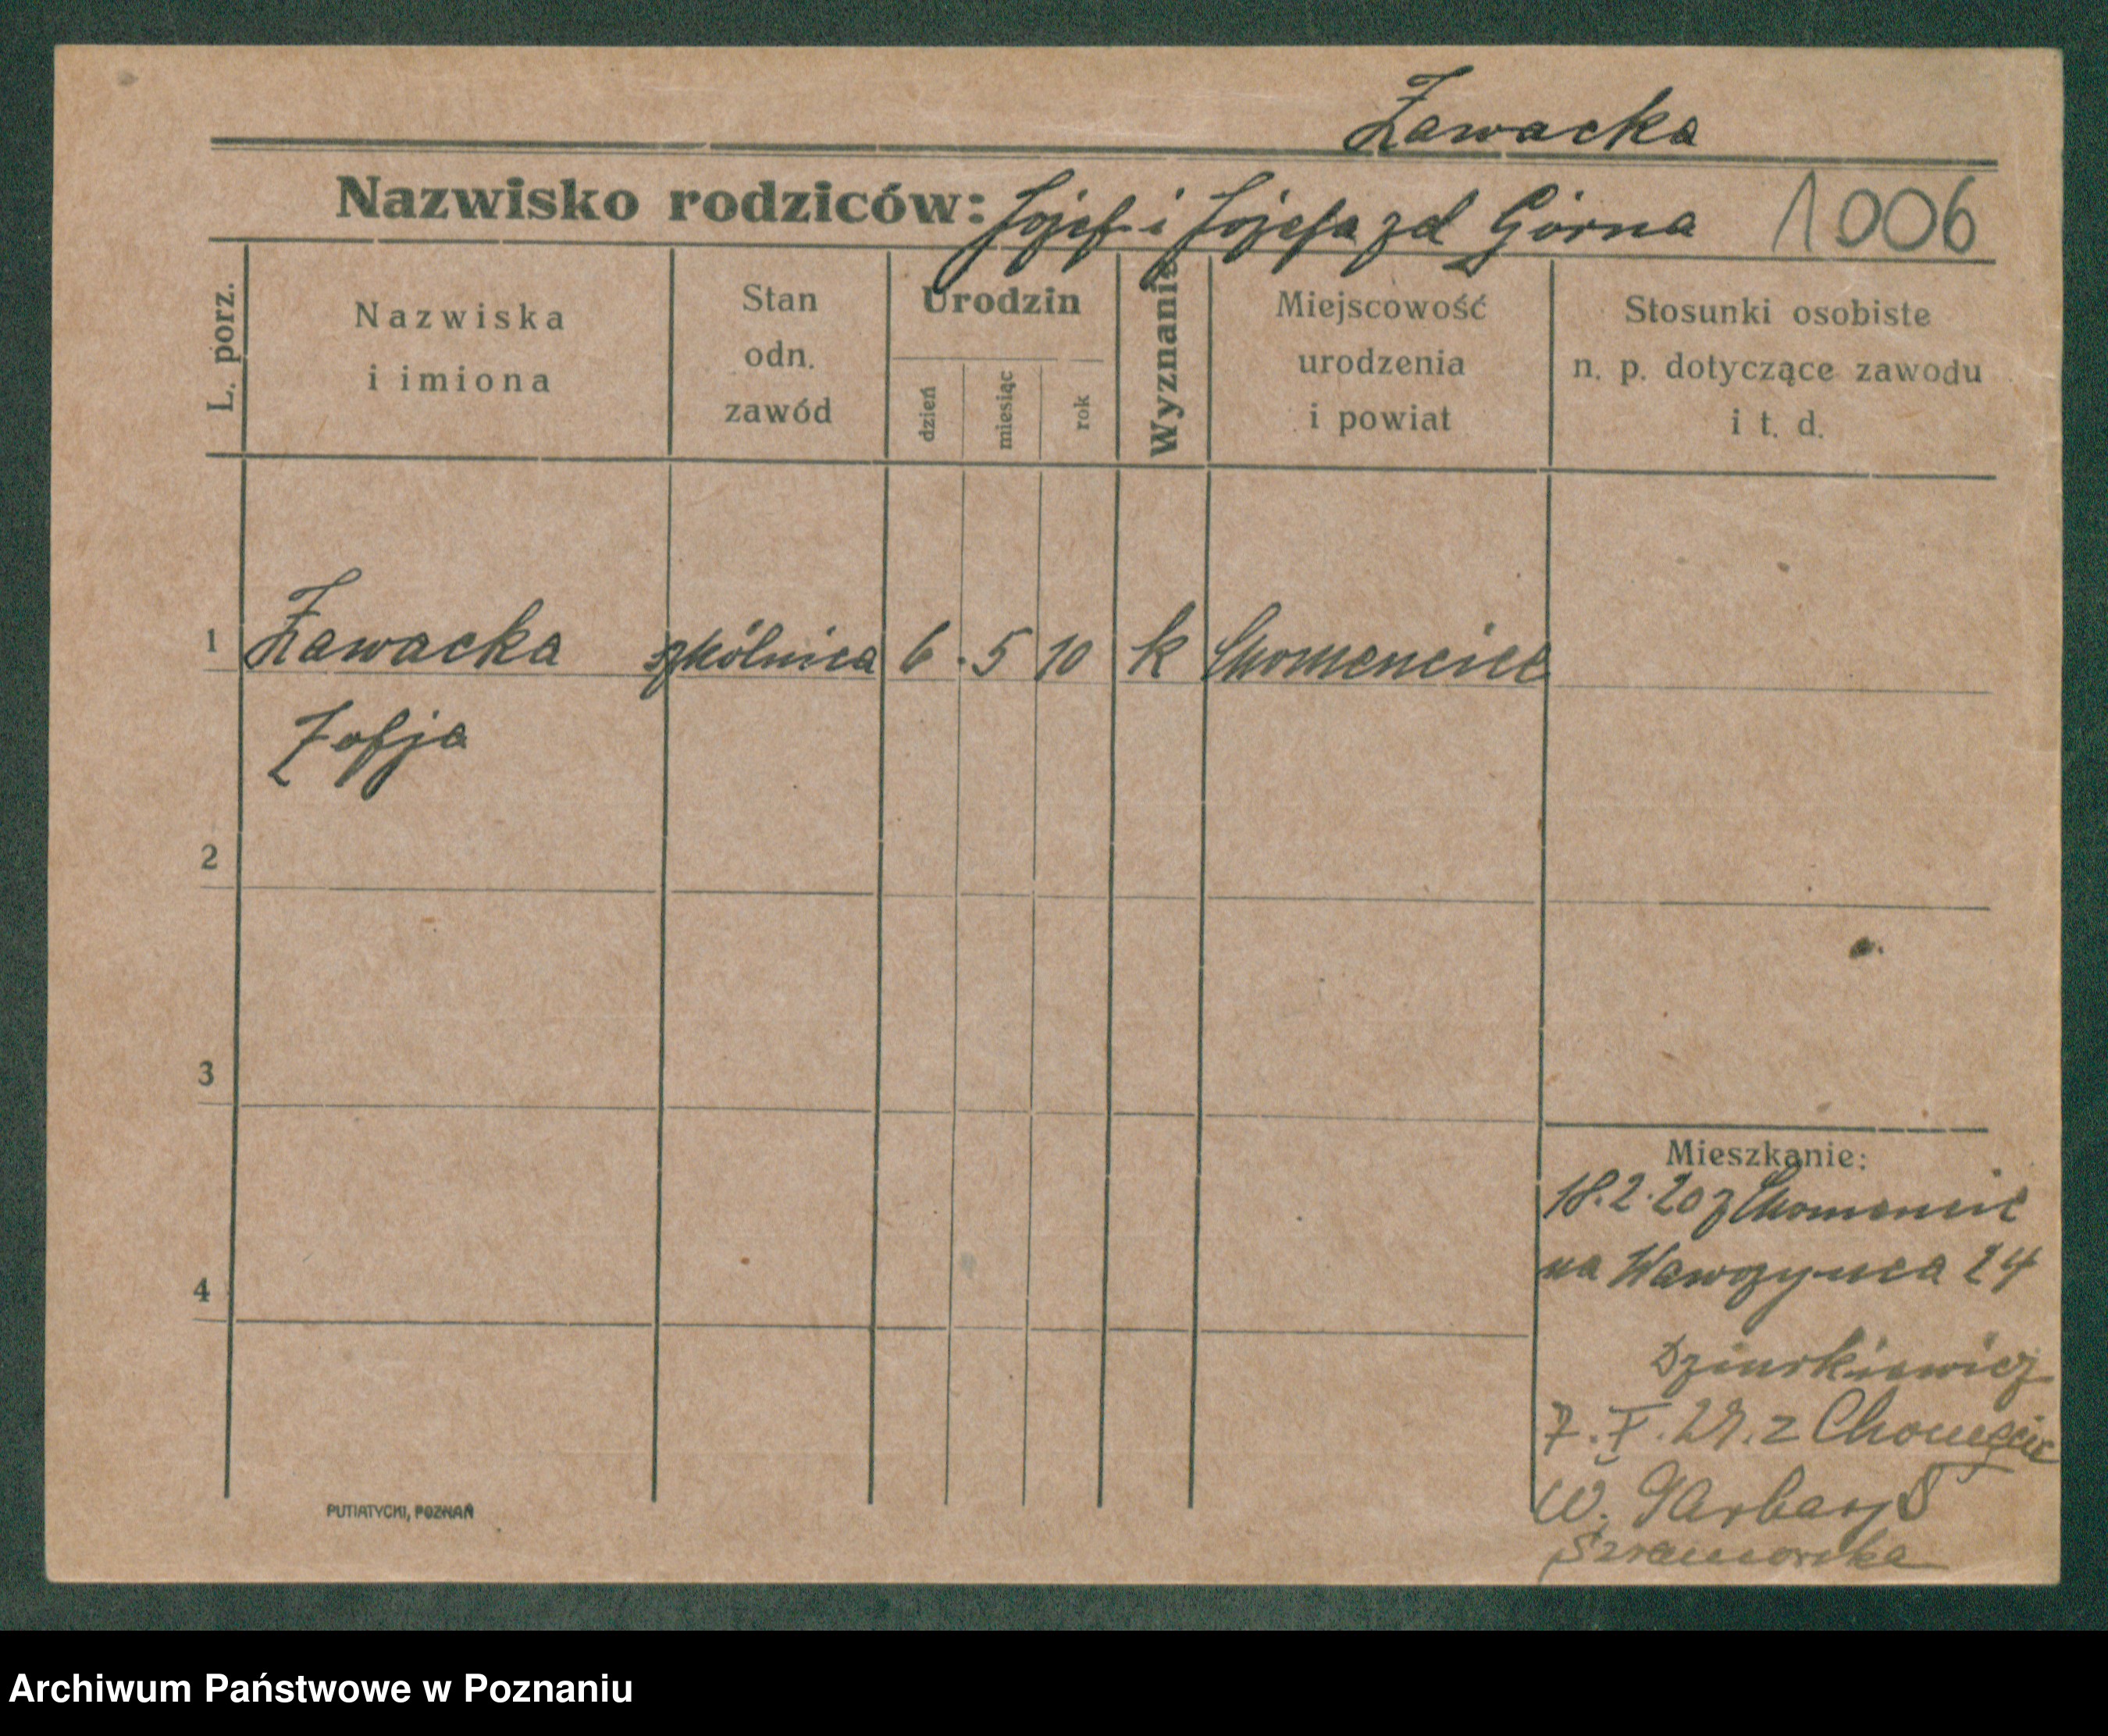 Zawacka
Nazwisko rodziców: Józef i Józefa zd Górna 1006
L. porz.
Nazwiska i imiona
Stan odn. zawód
Urodzin
dzień miesiąc rok
Wyznanie
Miejscowość urodzenia i powiat
Stosunki osobiste n. p. dotyczące zawodu i t. d.
1 Zawacka szkólnica 6. 5 10 k
Zofja
2
3
Mieszkanie:
18.2.20 z
4
na Wawrzynca 24
Dziurkiewicz
7. V. 21. z Chomęcic
W. Garbary 8
Szramowska
PUTIATYCKI, POZNAŃ
Archiwum Państwowe w Poznaniu